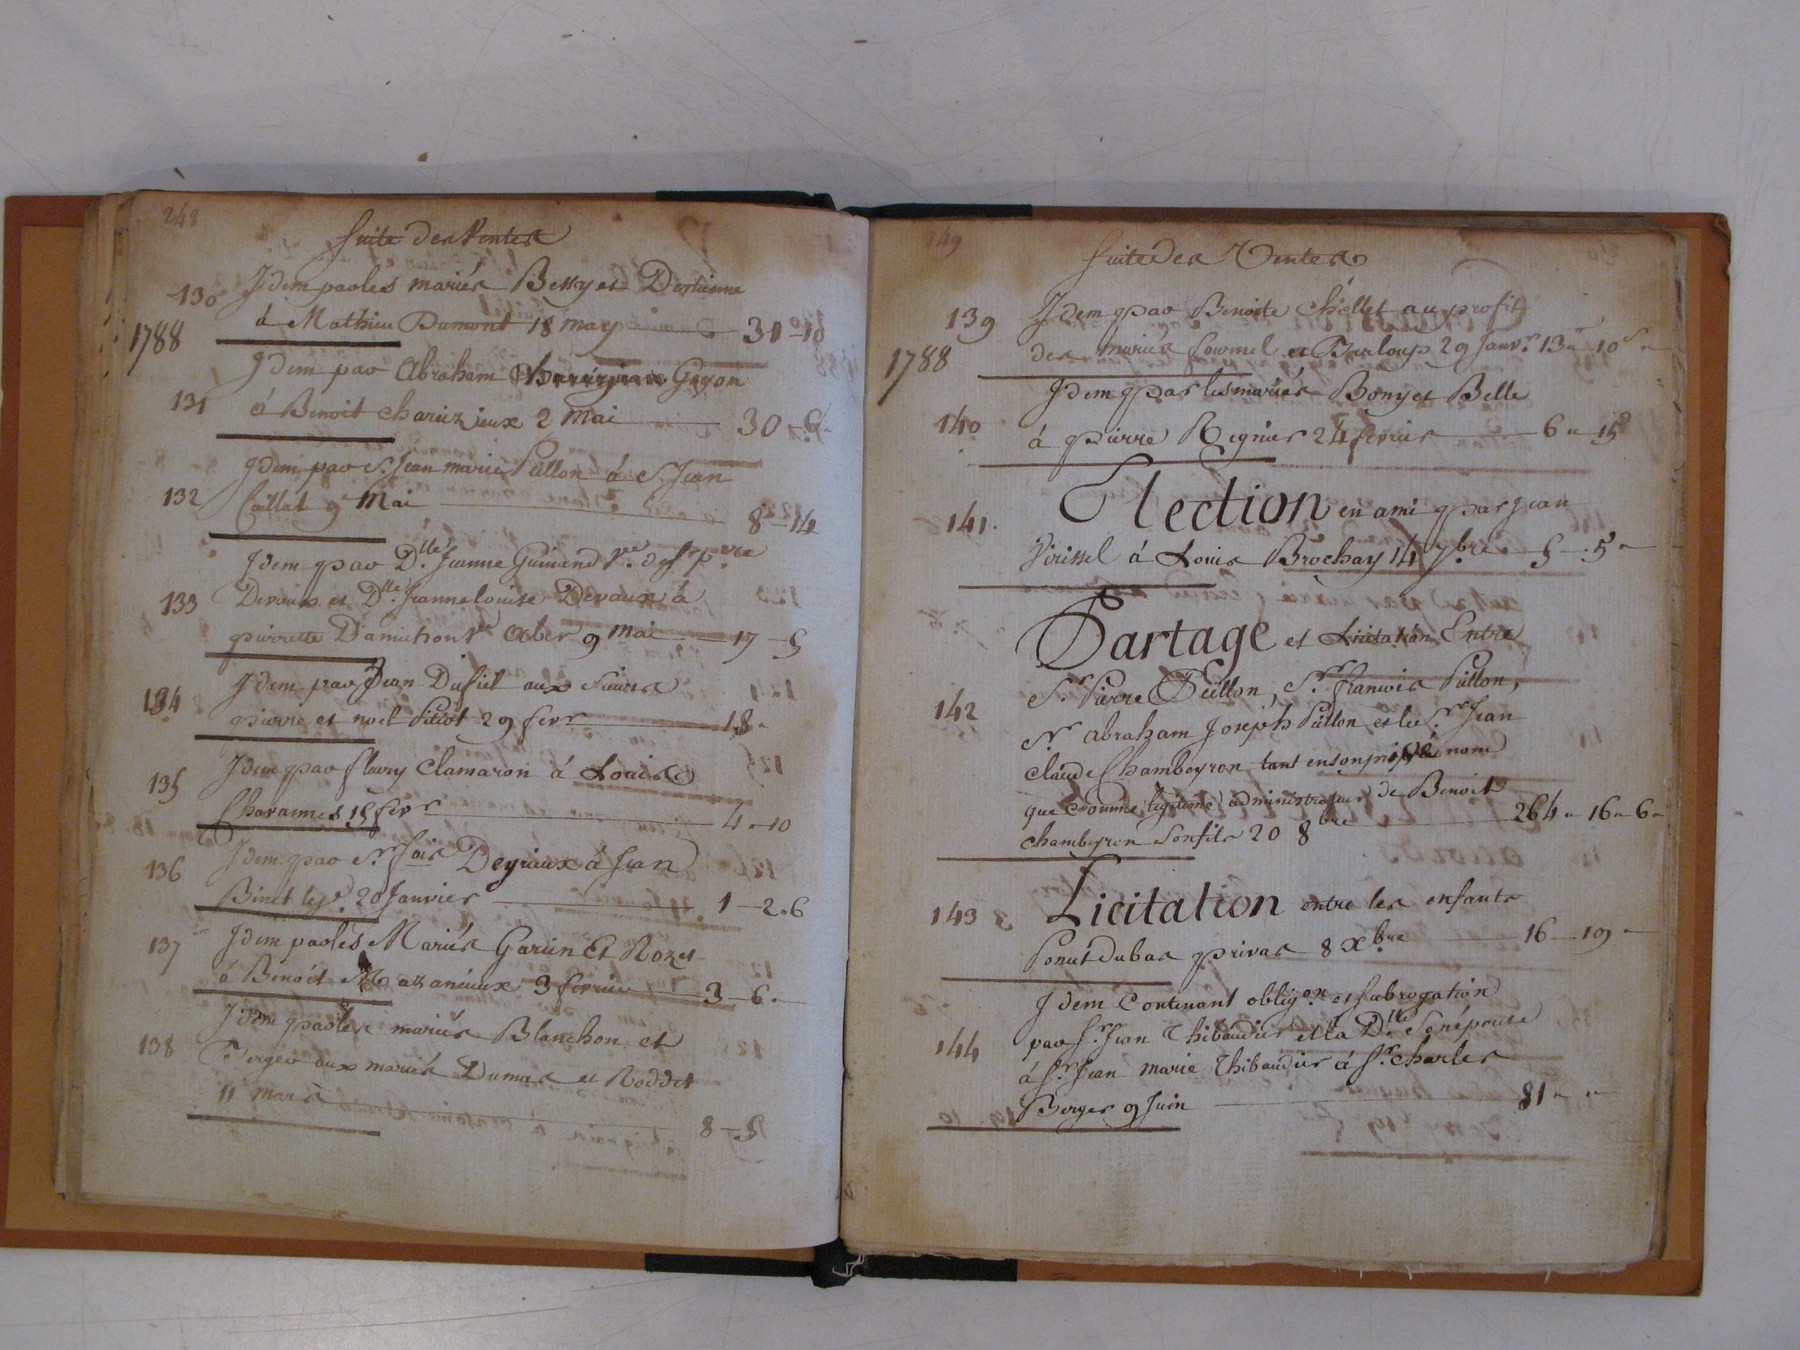 248
Suite des Ventes
130 Idem par les mariés Bessy et Dortienne
à Mathieu Dumont 18 may 31 - 10
1788
Idem par Abraham Gayon
131 à Benoit chariezieux 2 Mai 30 - 6
Idem par Sr. Jean marie Pitllon à S. Jean
132 Caillat 9 Mai 8 - 14
Idem par Dlle. Jeanne Guinand ve. de Sr. pierre
133 Devaux et Dlle. Jeanne louise Devaux à
pierrette Damichon ve Ober 9 mai 17 - 5
Idem par Jean Dufiet aux Sieurs
134 pierre et noel Pitiot 29 fevr 18
Idem par fleury Clamaron à Louis
135 Charannes 15 fevr 4 - 10
Idem par Sr. fois Deyrieux à Jean
136 Binet le 20 Janvier 1 - 2 . 6
137 Idem par les Mariés Garin Et Rozet
à Benoit Mazanieux 3 fevrier 3 - 6 .
Idem par les mariés Blanchon et
138 Ferger aux mariés Dumas et Roddet
11 mars 8 - 5
249
Suite des Ventes
139 Idem par Benoite Chollet au profit
des mariés fournel et Burloup 29 Janvr. 13 " 10 s "
1788
Idem par les mariés Bony et Belle
140 à pierre Regnier 24 fevrier 6 " 15
141. Election en ami par Jean
Virissel à Louis Brochay 14 7bre 5 - 5 "
Partage et Licitation Entre
142 Sr. Pierre Pitllon, Sr. francois Pitllon,
Sr. abraham Joseph Pitllon et le Sr. Jean
claude Chambeyron tant en son propre nom
que comme legitime administrateur de Benoit
chambeyron son fils 20 8bre 264 " 16 " 6 "
143 Licitation entre les enfants
Ponut dubas privas 8 Xbre 16 - 19 "
Idem Contenant oblig.on et subrogation
144 par Sr. Jean Thibaudier et la Dlle Seneprute
à Sr. Jean marie Thibaudier à Sr. charles
Berger 9 Juin 81 " "